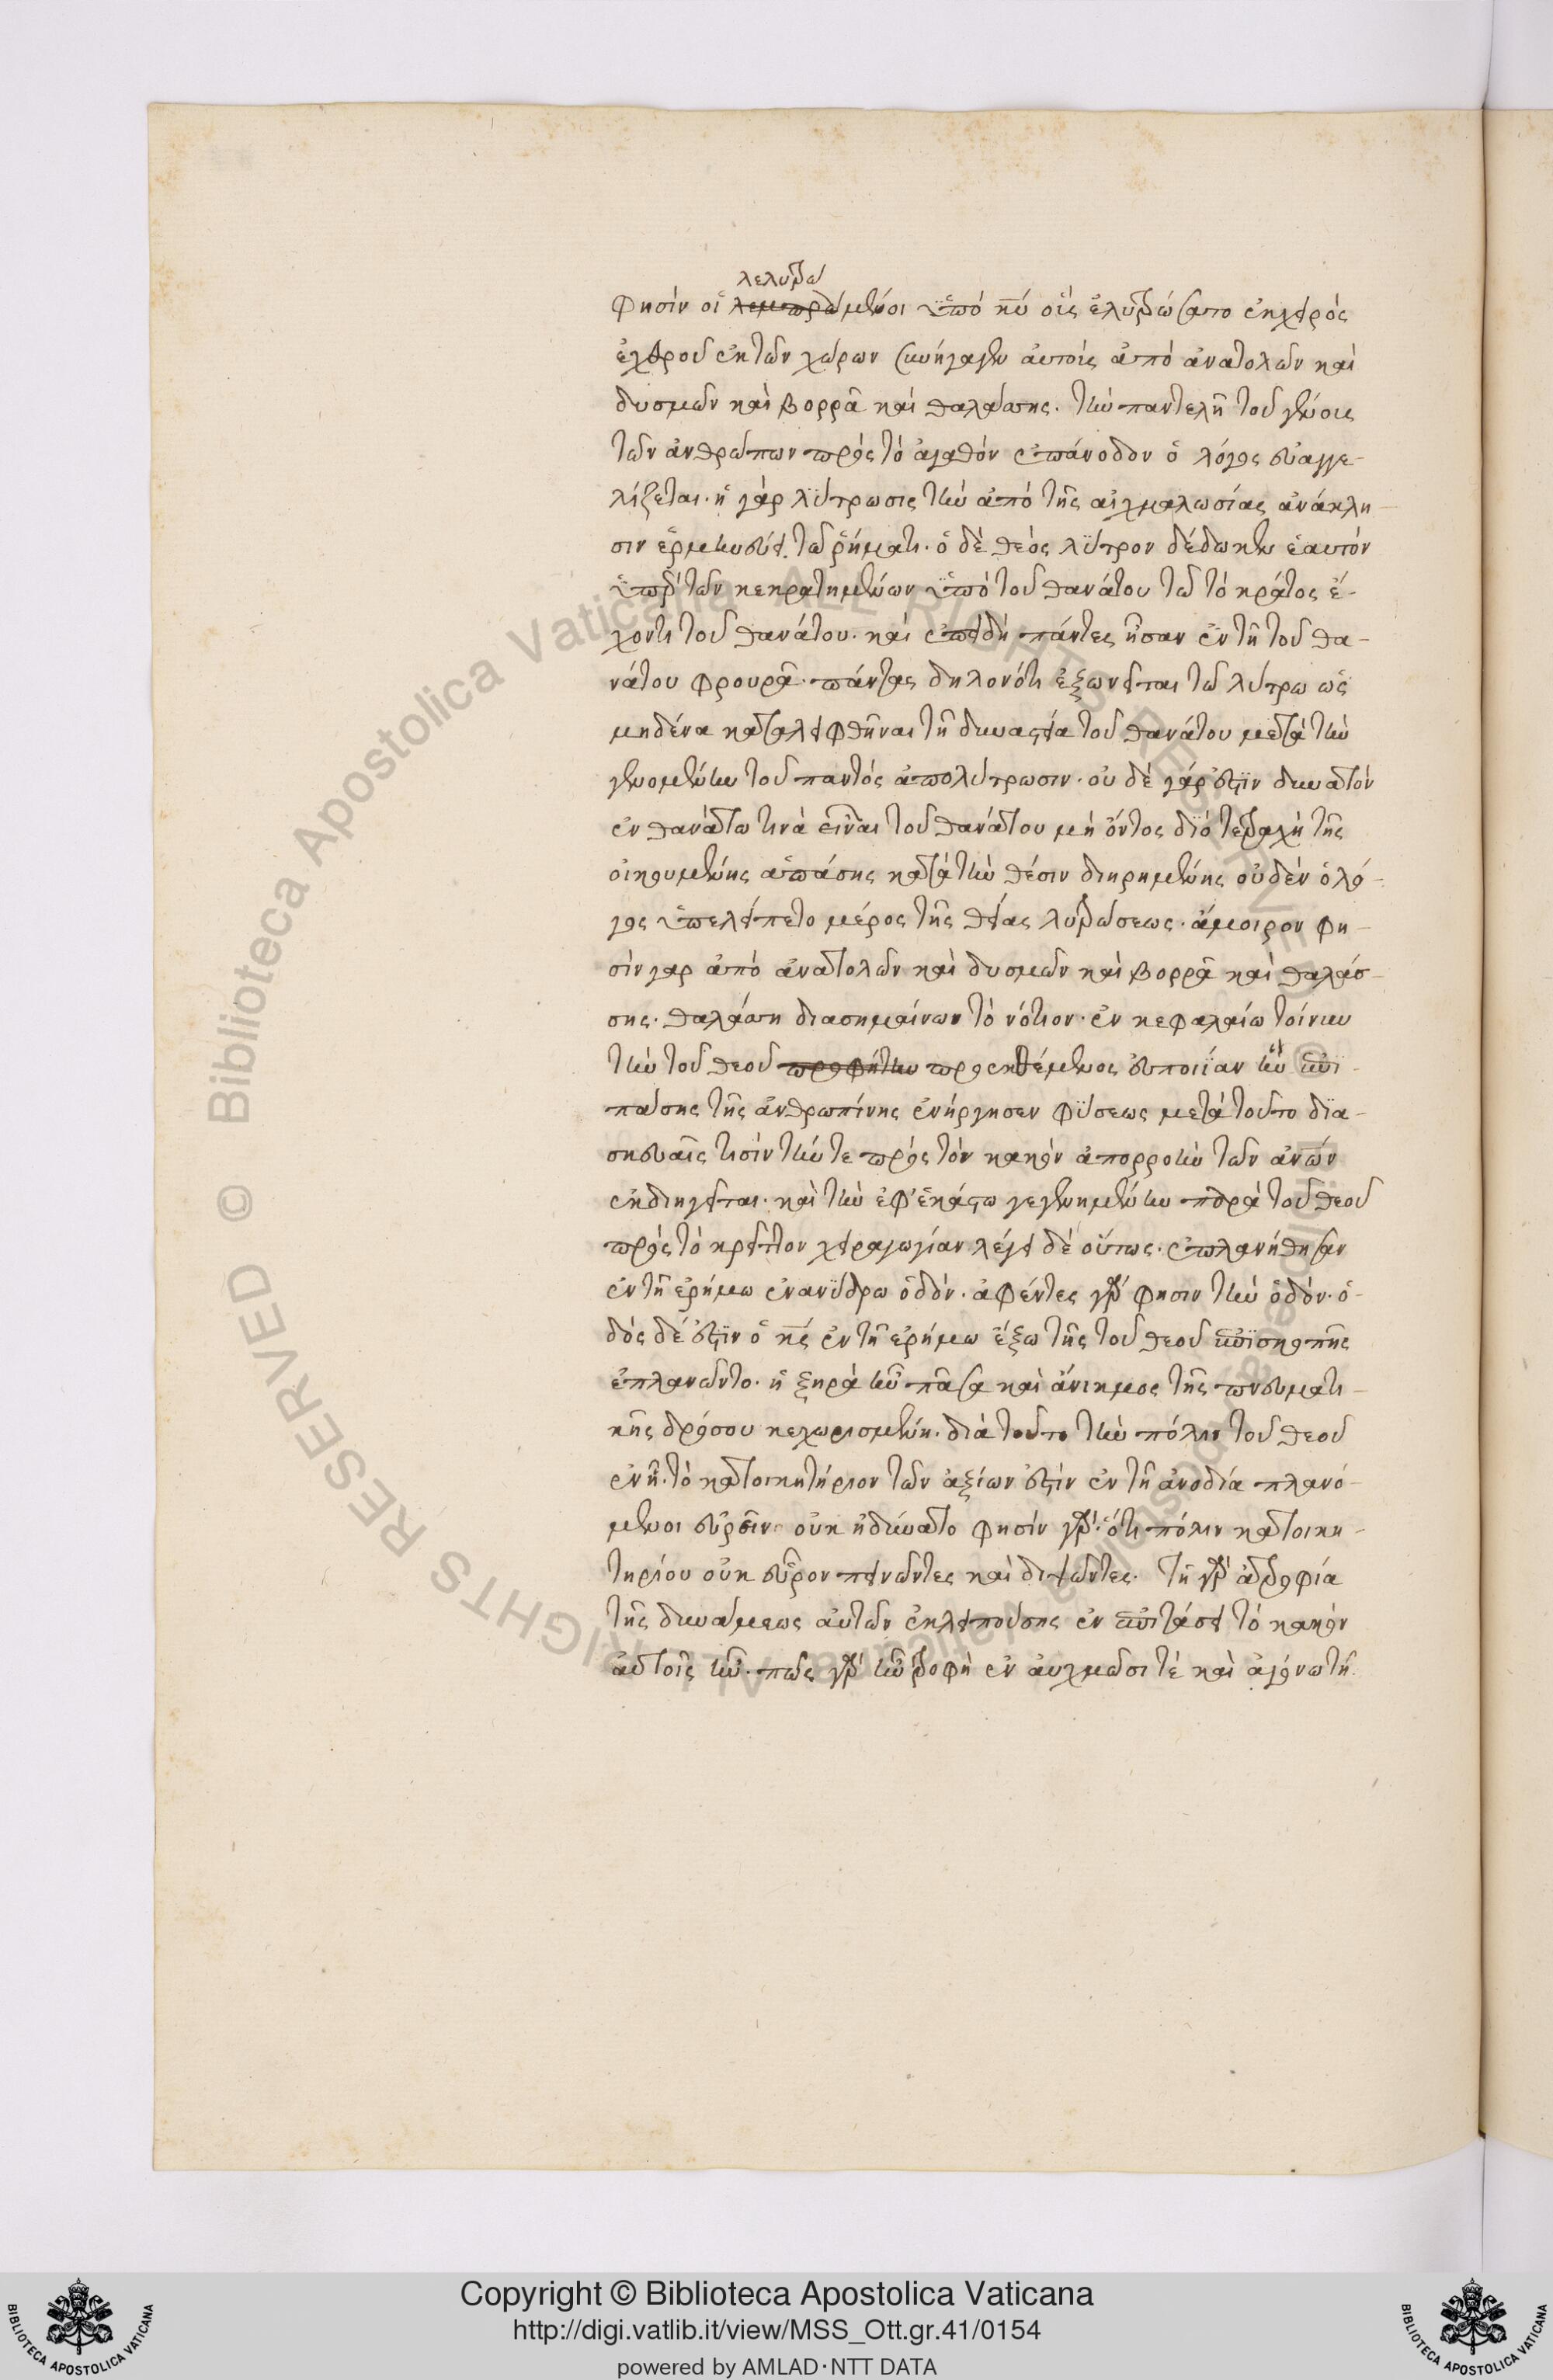 λελυτρω
φησὶν οἱ λεμπρωμένοι ὑπὸ κυ οὓς ἐλυτρώσατο ἐκ χειρὸς
ἐχθροῦ ἐκ τῶν χώρων συνήγαγεν αὐτοὺς ἀπὸ ἀνατολῶν καὶ
δυσμῶν καὶ βορρᾶ καὶ θαλάσσης. τὴν παντελῆ τοῦ γένους
τῶν ἀνθρώπων πρὸς τὸ ἀγαθὸν ἐπάνοδον ὁ λόγος εὐαγγε-
λίζεται. ἡ γὰρ λύτρωσις τὴν ἀπὸ τῆς αἰχμαλωσίας ἀνάκλη-
σιν ἑρμηνεύει τῶ ῥήματι. ὁ δὲ θεὸς λύτρον δέδωκεν ἑαυτὸν
ὑπὲρ τῶν κεκρατημένων ὑπὸ τοῦ θανάτου τῶ τὸ κράτος ἔ-
χοντι τοῦ θανάτου. καὶ ἐπειδὴ πάντες ἦσαν ἐν τῆ τοῦ θα-
νάτου φρουρᾶ. πάντας δηλονότι ἐξωνεῖται τῶ λύτρω ὡς
μηδένα καταλειφθῆναι τῆ δυναστεία τοῦ θανάτου μετὰ τὴν
γενομένην τοῦ παντὸς ἀπολύτρωσιν. οὐ δὲ γάρ ἐστιν δυνατὸν
ἐν θανάτω τινὰ εἶναι τοῦ θανάτου μὴ ὄντος διὸ τετραχῆ τῆς
οἰκουμένης ἁπάσης κατὰ τὴν θέσιν διηρημένης οὐδὲν ὁ λό-
γος ὑπελείπετο μέρος τῆς θείας λυτρώσεως. ἄμοιρον φη-
σὶν γαρ ἀπὸ ἀνατολῶν καὶ δυσμῶν καὶ βορρᾶ καὶ θαλάσ-
σης. θαλάσση διασημαίνων τὸ νότιον. ἐν κεφαλαίω τοίνυν
τὴν τοῦ θεοῦ προφήτην προσεκθέμενος εὐποιΐαν ἣν ἐπι-
πάσης τῆς ἀνθρωπίνης ἐνήργησεν φύσεως μετὰ τοῦτο δια-
σκευαῖς τισὶν τήν τε πρὸς τὸν κακὸν ἀπορροὴν τῶν ἀνων
ἐκδιηγεῖται. καὶ τὴν ἐφ' ἑκάστω γεγενημένην παρὰ τοῦ θεοῦ
πρὸς τὸ κρεῖττον χειραγωγίαν λέγει δὲ οὕτως. ἐπλανήθησαν
ἐν τῆ ἐρήμω ἐν ανύδρω ὁδὸν. ἀφέντες γάρ φησιν τὴν ὁδὸν. ὁ-
δὸς δέ ἐστιν ὁ κς ἐν τῆ ἐρήμω ἔξω τῆς τοῦ θεοῦ ἐπισκοπῆς
ἐπλανῶντο. ἡ ξηρὰ ἦν πᾶσα καὶ ἄνικμος τῆς πνευματι-
κῆς δρόσου κεχωρισμένη. διὰ τοῦτο τὴν πόλιν τοῦ θεοῦ
ἐν ἧ τὸ κατοικητήριον τῶν ἀξίων ἐστὶν ἐν τῆ ἀνοδία πλανό-
μενοι εὑρεῖν. οὐκ ἠδύνατο φησὶν γάρ. ὅτι πόλιν κατοικη-
τηρίου οὐκ εὗρον πεινῶντες καὶ διψῶντες. τῆ γὰρ ἀτροφία
τῆς δυνάμεως ἀυτῶν ἐκλειπούσης ἐν ἐπιτάσει τὸ κακὸν
ἀυτοῖς ἦν. πῶς γὰρ ἦν τροφὴ ἐν ἀυχμῶσι τὲ καὶ ἀγόνω τῆ
Copyright © Biblioteca Apostolica Vaticana
http://digi.vatlib.it/view/MSS_Ott.gr.41/0154
powered by AMLAD·NTT DATA
BIBLIOTECA APOSTOLICA VATICANA
BIBLIOTECA APOSTOLICA VATICANA
© Biblioteca Apostolica Vaticana ALL RIGHTS RESERVED